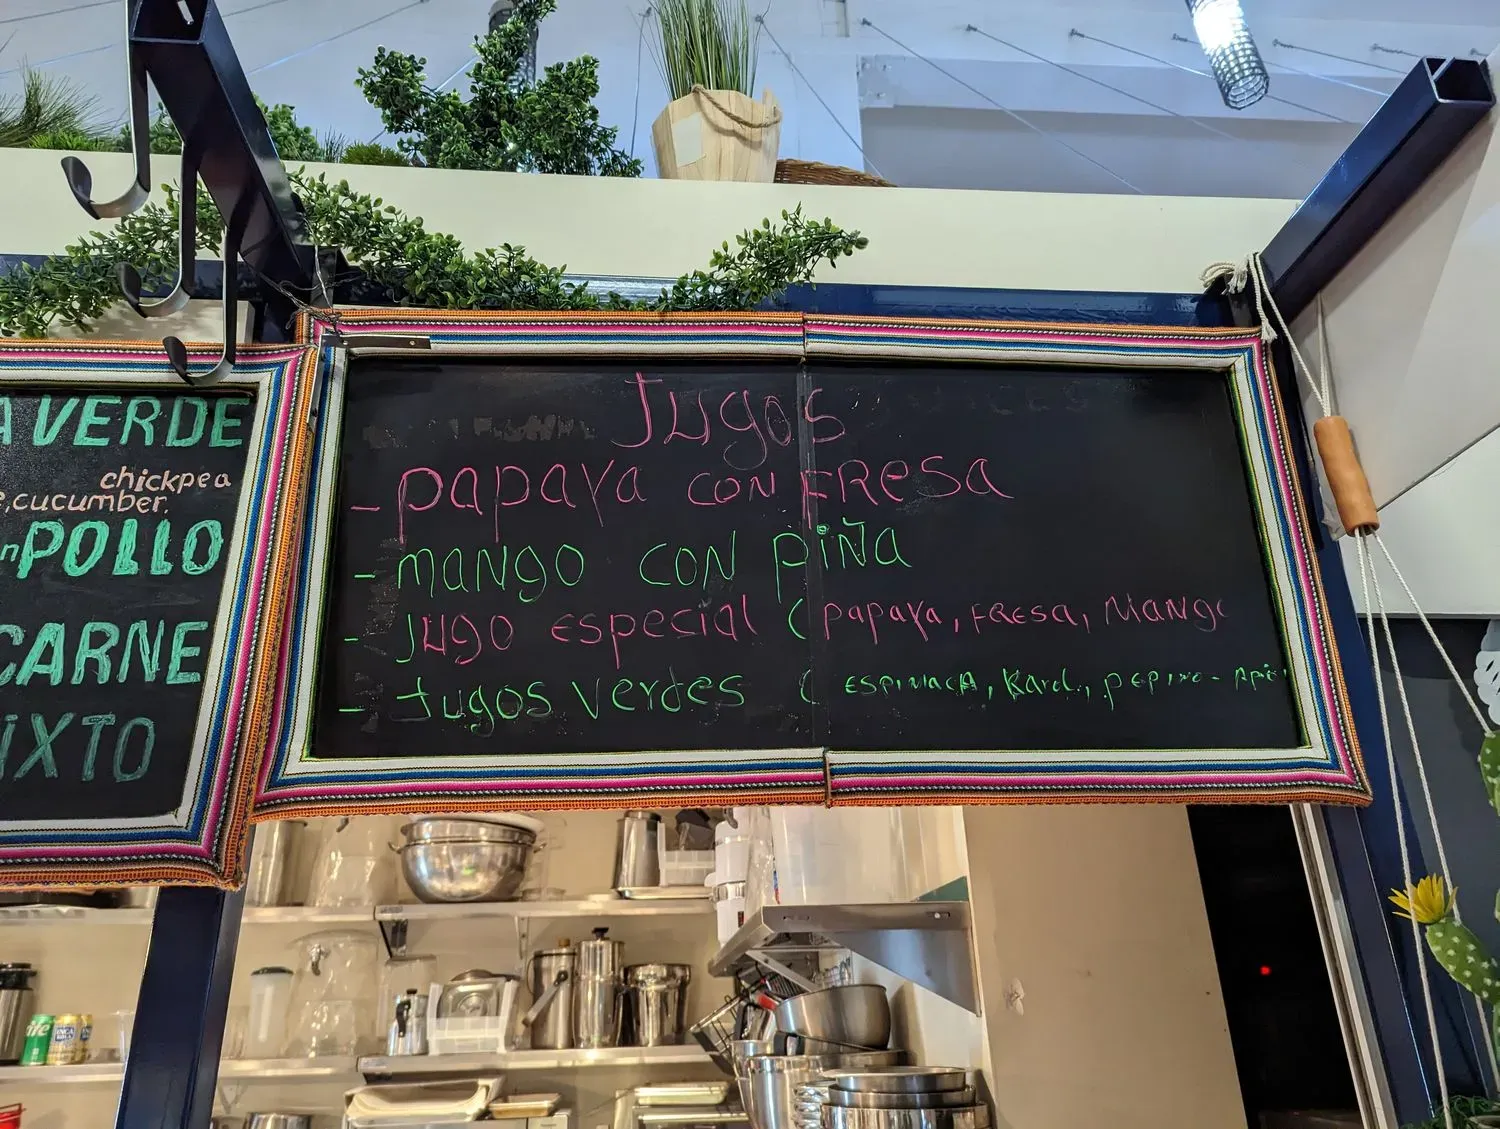 A VERDE
chickpea
e, cucumber.
n POLLO
CARNE
IXTO
Jugos
- papaya con FRESA
- mango con piña
- jugo especial ( papaya, FRESA, Mango
- Jugos verdes ( ESPINACA, Karel., pepino - Apio
INCA